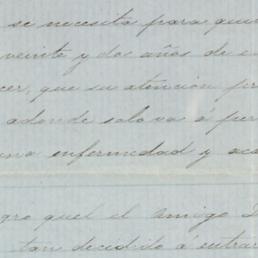 se necesita para qui
veinte y dos años de e
cer, que su atencion pr
adonde solo va a per
una enfermedad y aca
gro que el amigo D
tan decidido á entrar